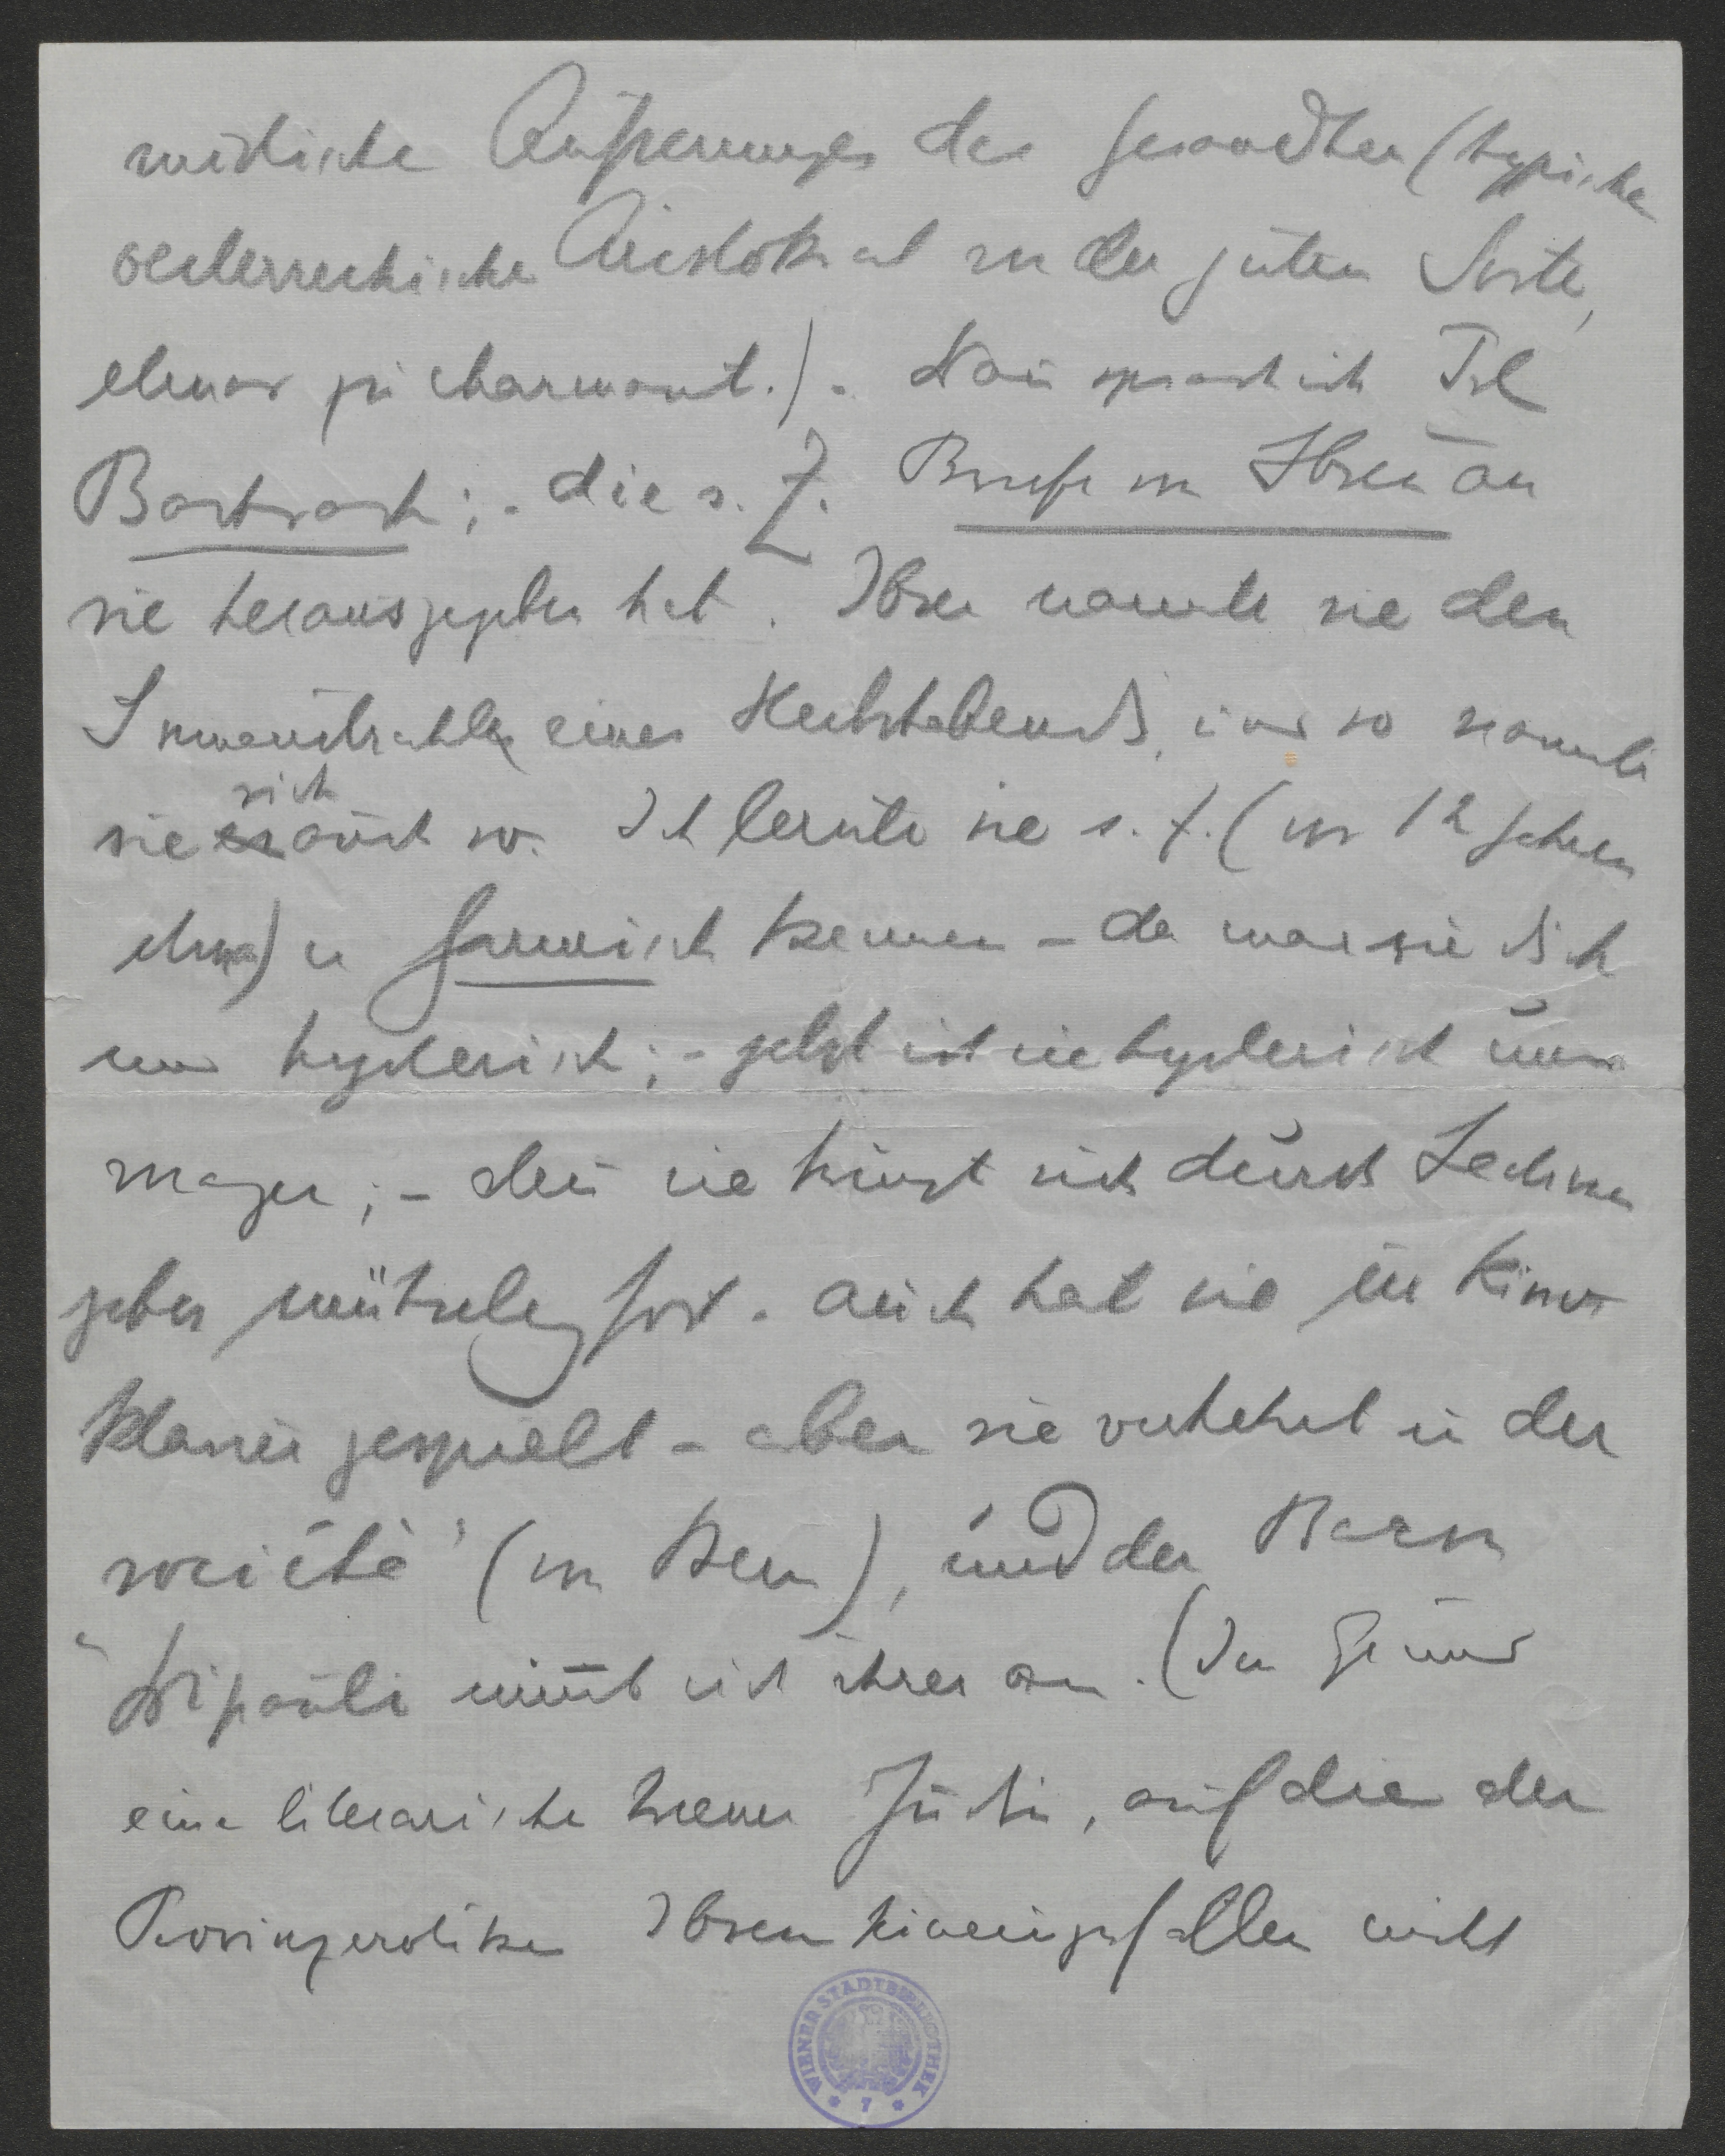 nordische Äußerungen des Gesandten (typischer
oesterreichischer Aristokrat von der guten Sorte,
etwas zu charmant.) – Dann sprach ich Frl
Bardach; – die s. Z. Briefe von Ibsen an
sie herausgegeben hat. Ibsen nannte sie den
Sonnenstrahl eines Herbstabends, und so nannte
sie sich auch so. Ich lernte sie s. Z. (vor 12 Jahren
etwa) in kennen – da war sie dick
und hysterisch; – jetzt ist sie hysterisch und
mager; – denn sie bringt sich durch Lectionen
geben mühselig fort. auch hat sie im Kino
Klavier gespielt – aber sie verkehrt in der
société (von Bern), und der Baron
Dipauli nimmt sich ihrer an. (Im Grund
eine literarische Wiener Jüdin, auf die der
Provinzerotiker Ibsen hineingefallen wird
WIENER STADTBIBLIOTHEK
* 7 *